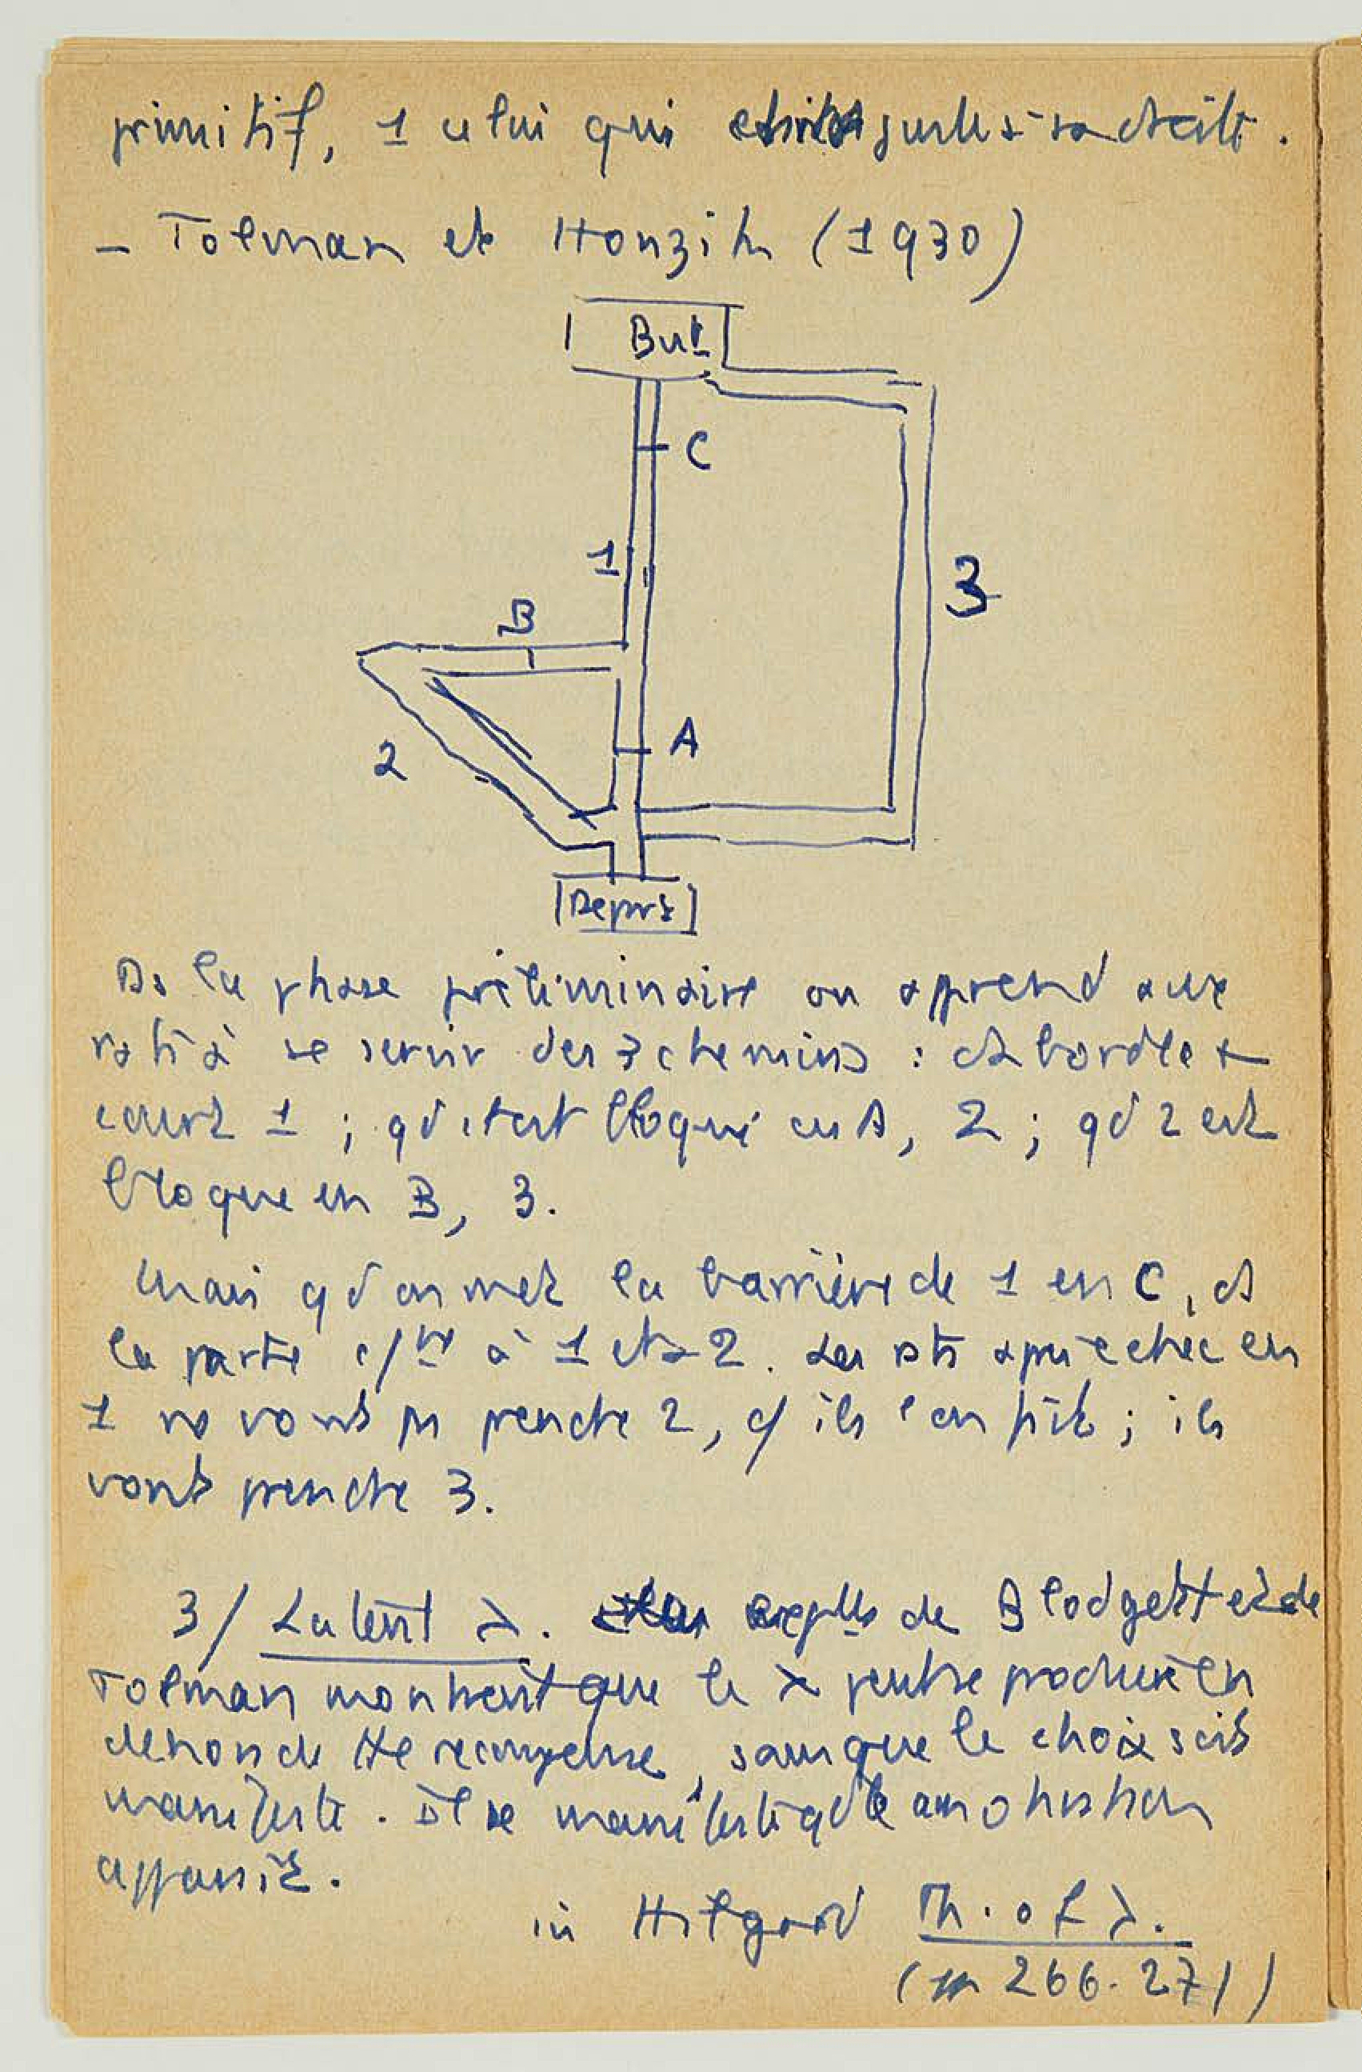 primitif, 1 celui qui juste à sa droite.
- Tolman et Honzik (1930)
But
C
1
B
3
A
2
Départ
Ds la phase préliminaire on apprend aux
rats à se servir des 3 chemins : d'abord le +
court 1 ; qd il est bloqué en A, 2 ; qd 2 est
bloqué en B, 3.
Mais qd on met la barrière de 1 en C, ds
la partie c/ne à 1 et à 2. Les rats après échec en
1 ne vont ps prendre 2, c/ ils l'on fait ; ils
vont prendre 3.
3/ Latent λ. de Blodgett et de
Tolman montrent que le λ peut se produire en
dehors de tte récompense, sans que le choix soit
manifeste. Il se manifeste qd la motivation
apparaît.
in Hilgard Th. of λ.
(pp 266-271)